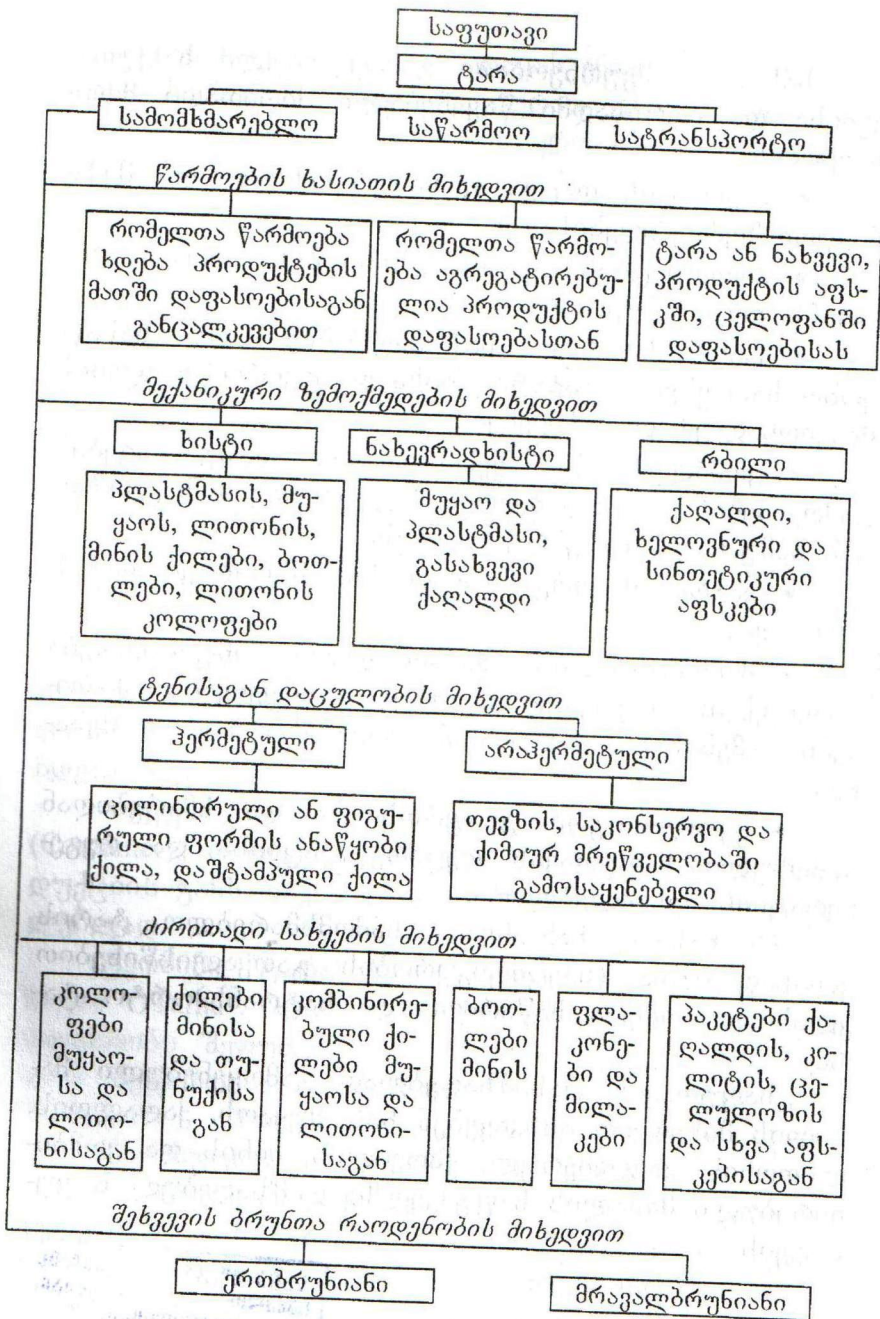 საფუთავი
ტარა
სამომხმარებლო
საწარმოო
სატრანსპორტო
წარმოების ხასიათის მიხედვით
რომელთა წარმოება
ხდება პროდუქტების
მათში დაფასოებისაგან
განცალკევებით
რომელთა წარმო-
ება აგრეგატირებუ-
ლია პროდუქტის
დაფასოებასთან
ტარა ან ნახვევი,
პროდუქტის აფს-
კში, ცელოფანში
დაფასოებისას
მექანიკური ზემოქმედების მიხედვით
ხისტი
ნახევრადხისტი
რბილი
პლასტმასის, მუ-
ყაოს, ლითონის,
მინის ქილები, ბოთ-
ლები, ლითონის
კოლოფები
მუყაო და
პლასტმასი,
გასახვევი
ქაღალდი
ქაღალდი,
ხელოვნური და
სინთეტიკური
აფსკები
ტენისაგან დაცულობის მიხედვით
ჰერმეტული
არაჰერმეტული
ცილინდრული ან ფიგუ-
რული ფორმის ანაწყობი
ქილა, დაშტამპული ქილა
თევზის, საკონსერვო და
ქიმიურ მრეწველობაში
გამოსაყენებელი
ძირითადი სახეების მიხედვით
კოლო-
ფები
მუყაო-
სა და
ლითო-
ნისაგან
ქილები
მინისა
და თუ-
ნუქისა
გან
კომბინირე-
ბული ქი-
ლები მუ-
ყაოსა და
ლითონი-
საგან
ბოთ-
ლები
მინის
ფლა-
კონე-
ბი და
მილა-
კები
პაკეტები ქა-
ღალდის, კი-
ლიტის, ცე-
ლულოზის
და სხვა აფს-
კებისაგან
შეხვევის ბრუნთა რაოდენობის მიხედვით
ერთბრუნიანი
მრავალბრუნიანი